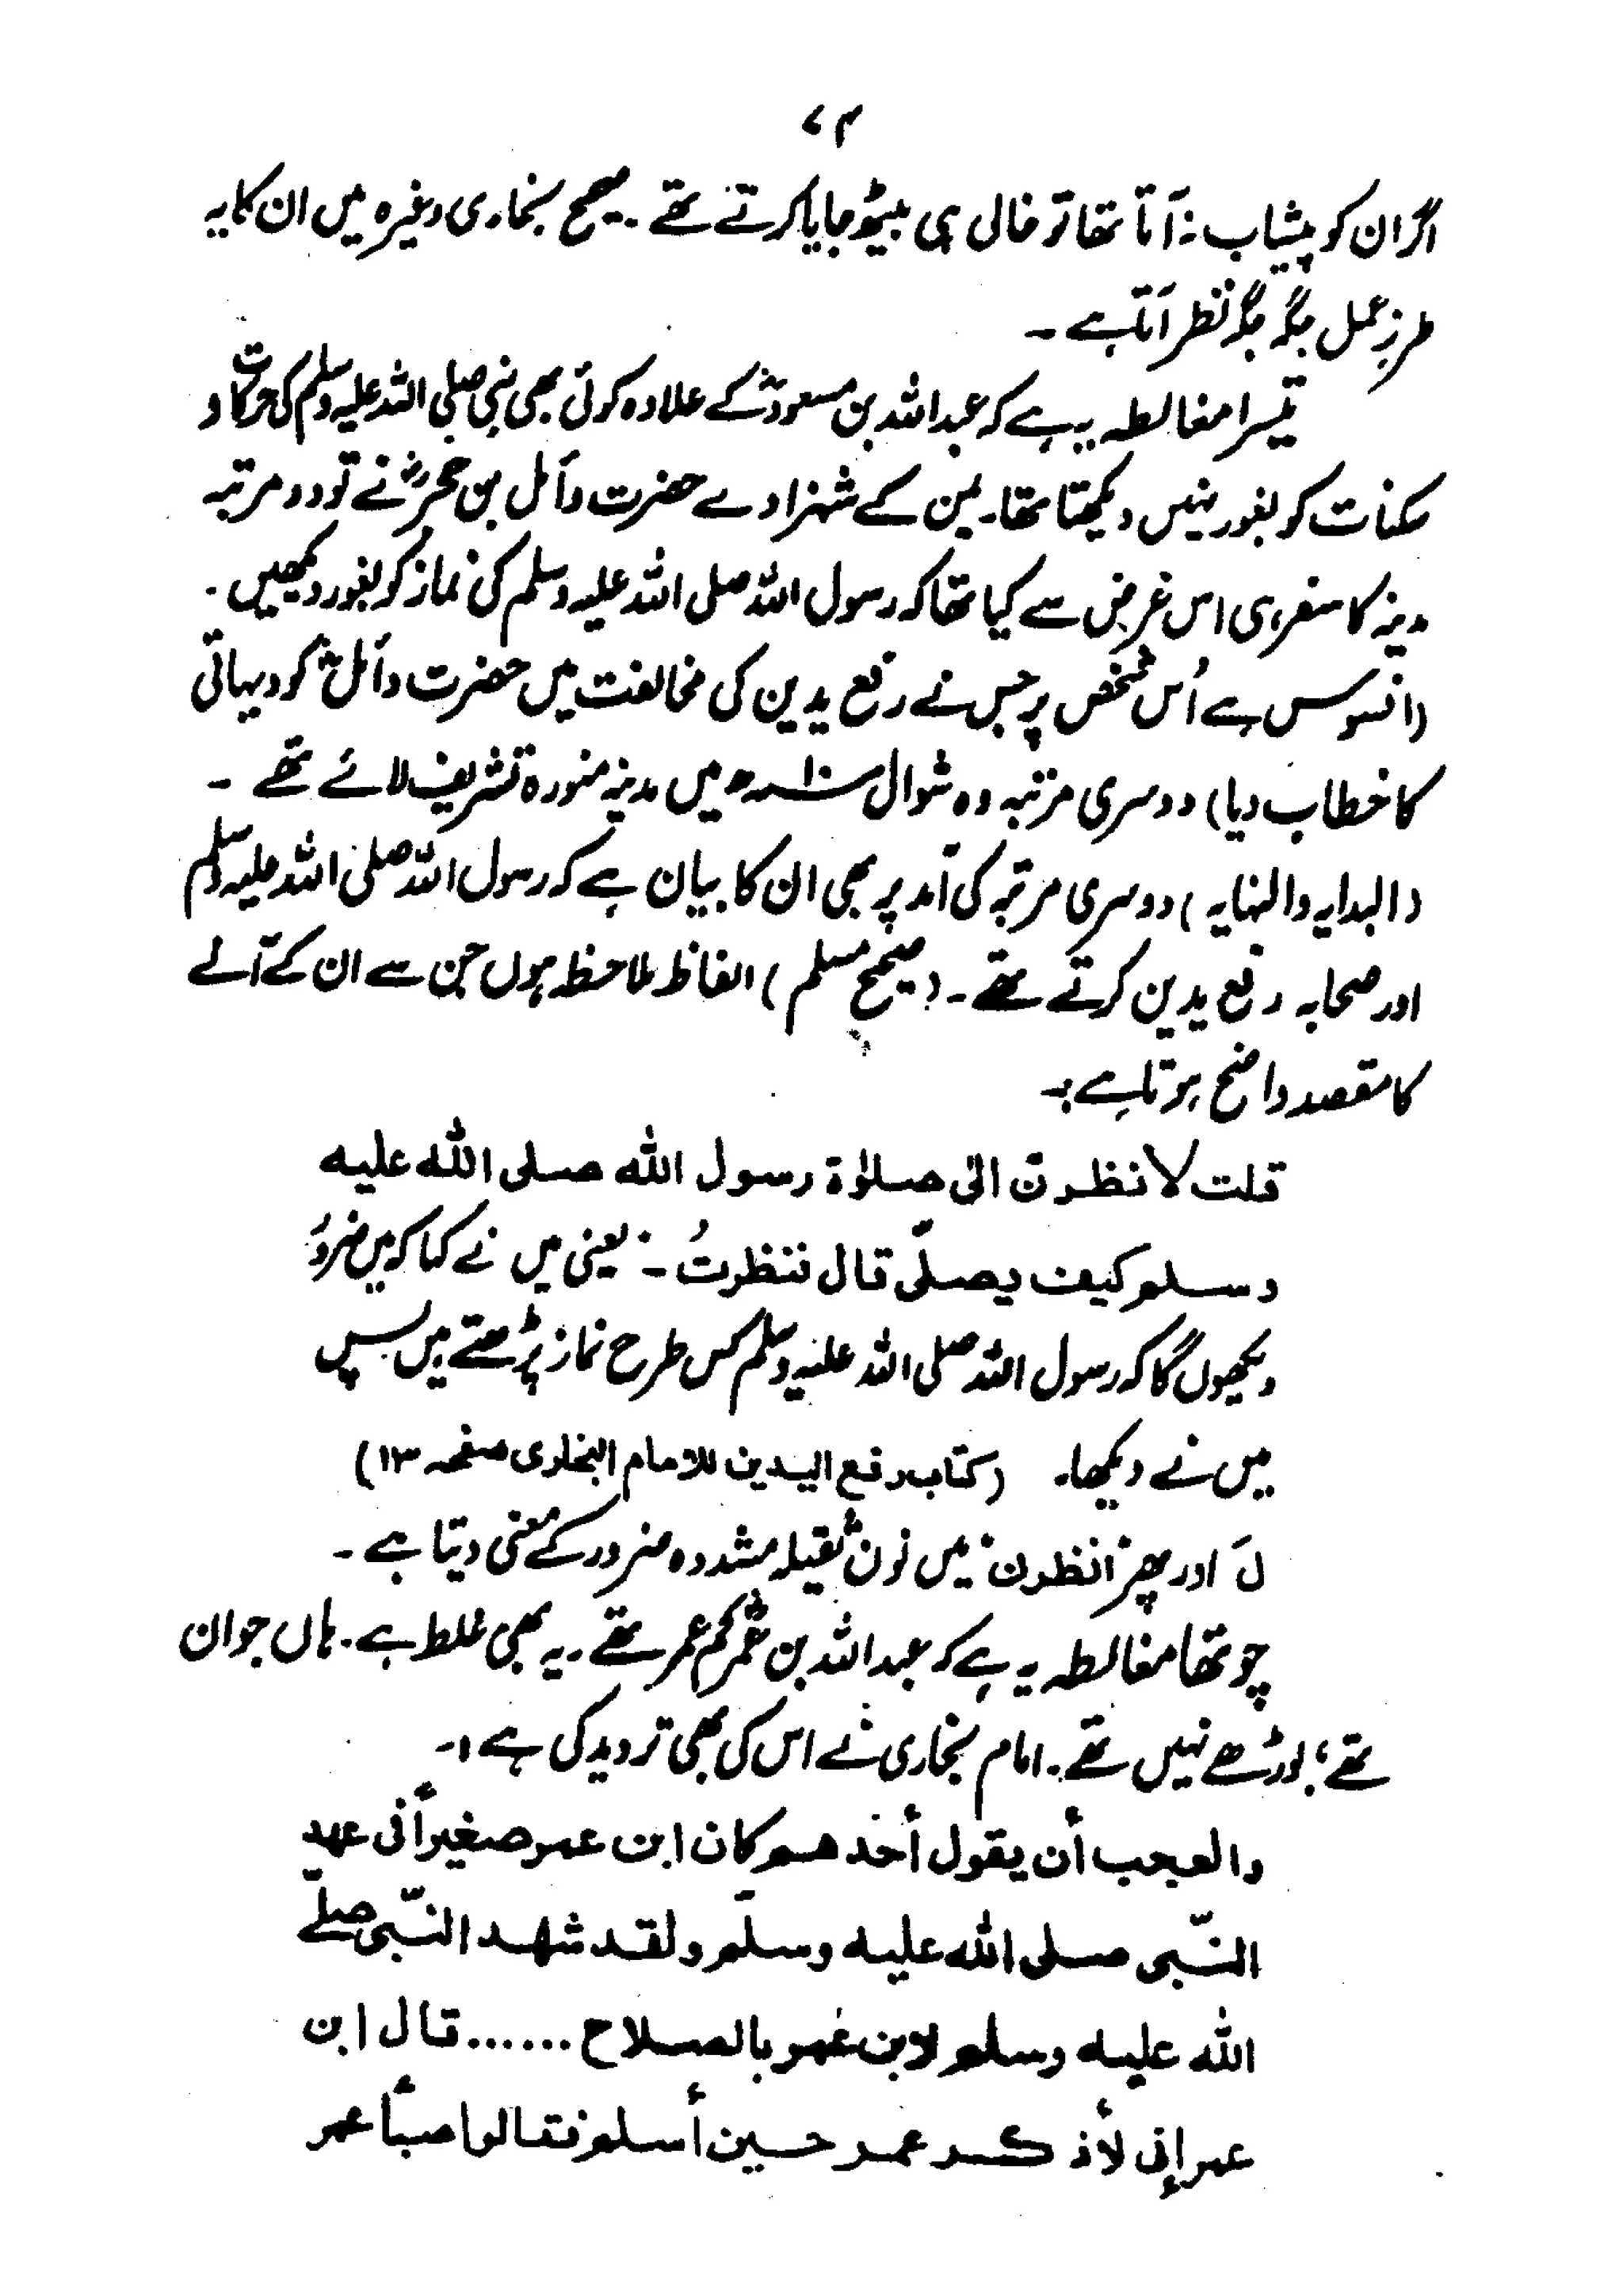 ۷۴
اگر ان کو پیشاب نہ آتا تھا تو خالی ہی بیٹھ جایا کرتے تھے۔ صحیح بخاری وغیرہ میں ان کا یہ
طرزِ عمل جگہ جگہ نظر آتا ہے ۔
تیسرا مغالطہ یہ ہے کہ عبداللہ بن مسعودؓ کے علاوہ کوئی بھی نبی صلی اللہ علیہ وسلم کی حرکات و
سکنات کو بغور نہیں دیکھتا تھا۔ یمن کے شہزادے حضرت وائل بن حجرؓ نے تو دو مرتبہ
مدینہ کا سفر ہی اس غرض سے کیا تھا کہ رسول اللہ صلی اللہ علیہ وسلم کی نماز کو بغور دیکھیں ۔
(افسوس ہے اُس شخص پر جس نے رفع یدین کی مخالفت میں حضرت وائلؓ کو دیہاتی
کا خطاب دیا) دوسری مرتبہ وہ شوال سنہ ۱۰ھ میں مدینہ منورہ تشریف لائے تھے ۔
(البدایہ والنہایہ) دوسری مرتبہ کی آمد پر بھی ان کا بیان ہے کہ رسول اللہ صلی اللہ علیہ وسلم
اور صحابہ رفع یدین کرتے تھے۔ (صحیح مسلم) الفاظ ملاحظہ ہوں جن سے ان کے آنے
کا مقصد واضح ہوتا ہے :۔
قلت لانظرنّ الیٰ صلوٰة رسول اللہ صلی اللہ علیہ
وسلم کیف یصلّی قال فنظرتُ ۔ یعنی میں نے کہا کہ میں ضرور
دیکھوں گا کہ رسول اللہ صلی اللہ علیہ وسلم کس طرح نماز پڑھتے ہیں پس
میں نے دیکھا۔ (کتاب رفع الیدین للامام البخاری صفحہ ۱۳)
لَ اور پھر "انظرن" میں نون ثقیلہ مشددہ ضرور کے معنی دیتا ہے ۔
چوتھا مغالطہ یہ ہے کہ عبداللہ بن عمرؓ کم عمر تھے ۔ یہ بھی غلط ہے ۔ ہاں جوان
تھے، بوڑھے نہیں تھے ۔ امام بخاری نے اس کی بھی تردید کی ہے :۔
والعجب أن یقول أحدھم کان ابن عمر صغیراً فی عھد
النّبی صلی اللہ علیہ وسلّم ولقد شھد النّبی صلّے
اللہ علیہ وسلم لابن عمر بالصلاح ...... قال ابن
عمر إنی لأذکر عمر حین أسلم فقالوا صبأ عمر